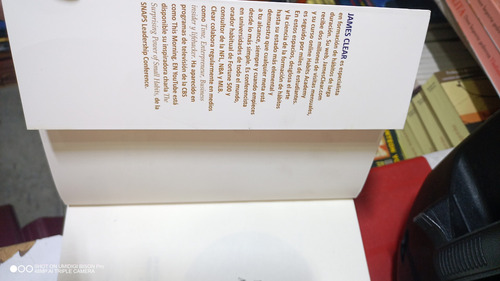 JAMES CLEAR es especialista
en formación de hábitos de larga
duración. Su web, JamesClear.com
recibe dos millones de visitas mensuales,
y su curso online Habits Academy
es seguido por miles de estudiantes.
En estos espacios, desglosa el arte
y la ciencia de la formación de hábitos
hasta su estado más elemental y
demuestra que cualquier meta está
a tu alcance, siempre y cuando empieces
desde lo más simple. Es conferencista
en universidades de todo el mundo,
orador habitual de Fortune 500 y
consultor de la NFL, NBA y MLB.
Clear colabora regularmente en medios
como Time, Entrepreneur, Business
Insider y Lifehacker. Ha aparecido en
programas de televisión en la CBS
como This Morning. EN YouTube está
disponible su inspiradora charla The
Surprising Power of Small Habits, de la
SNAPS Leadership Conference.
AI TRIPLE CAMERA